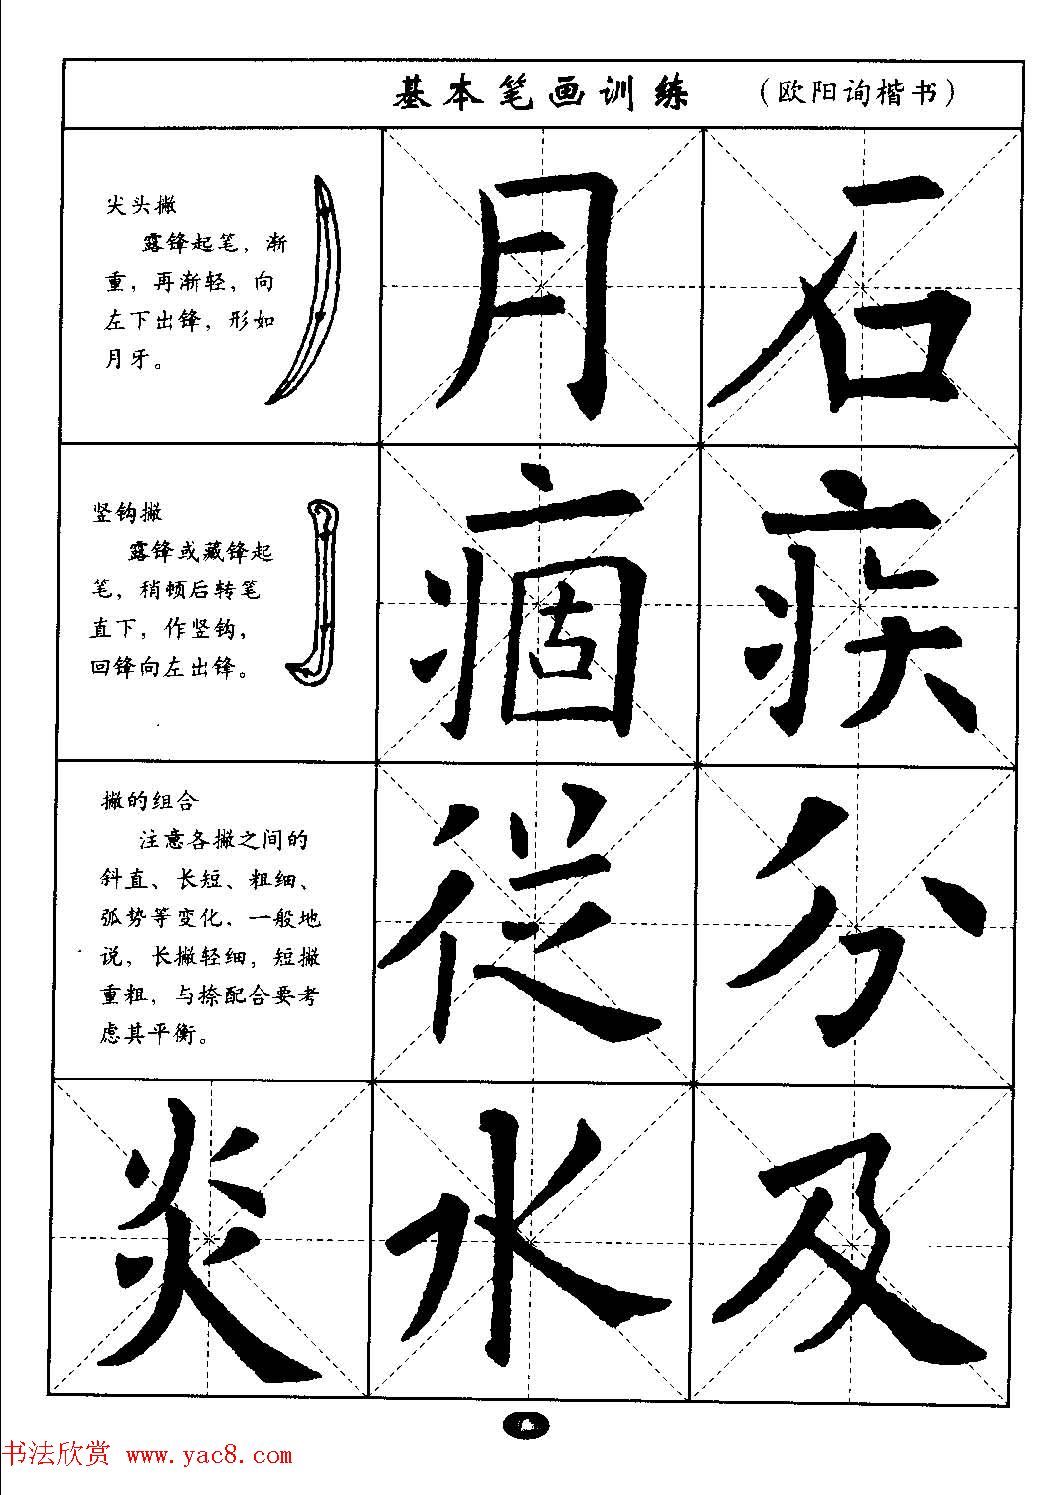 基本笔画训练 （欧阳询楷书）
尖头撇
露锋起笔，渐
重，再渐轻，向
左下出锋，形如
月牙。
月 石
竖钩撇
露锋或藏锋起
笔，稍顿后转笔
直下，作竖钩，
回锋向左出锋。
痼 疾
撇的组合
注意各撇之间的
斜直、长短、粗细、
弧势等变化，一般地
说，长撇轻细，短撇
重粗，与捺配合要考
虑其平衡。
從 分
炎 水 及
书法欣赏 www.yac8.com